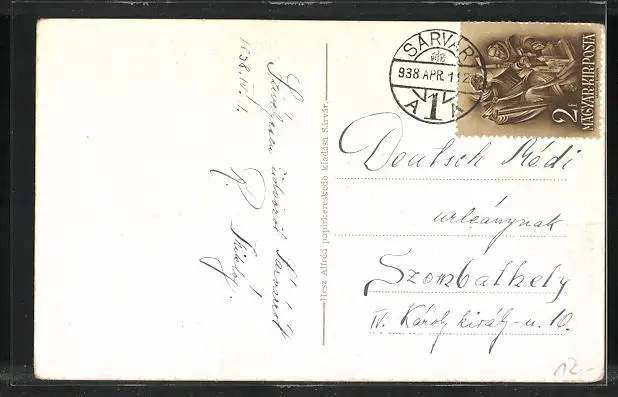 1938. IV. 1.
Szívélyesen üdvözöl Sárvárról
P. Miklós.
Hesz Alfréd papirkereskedő kiadása Sárvár.
SÁRVÁR
938 APR. 1
A 1 A
MAGYAR KIR. POSTA
2 F
Deutsch Médi
urleánynak
Szombathely
IV. Károly király-u. 10.
12.-